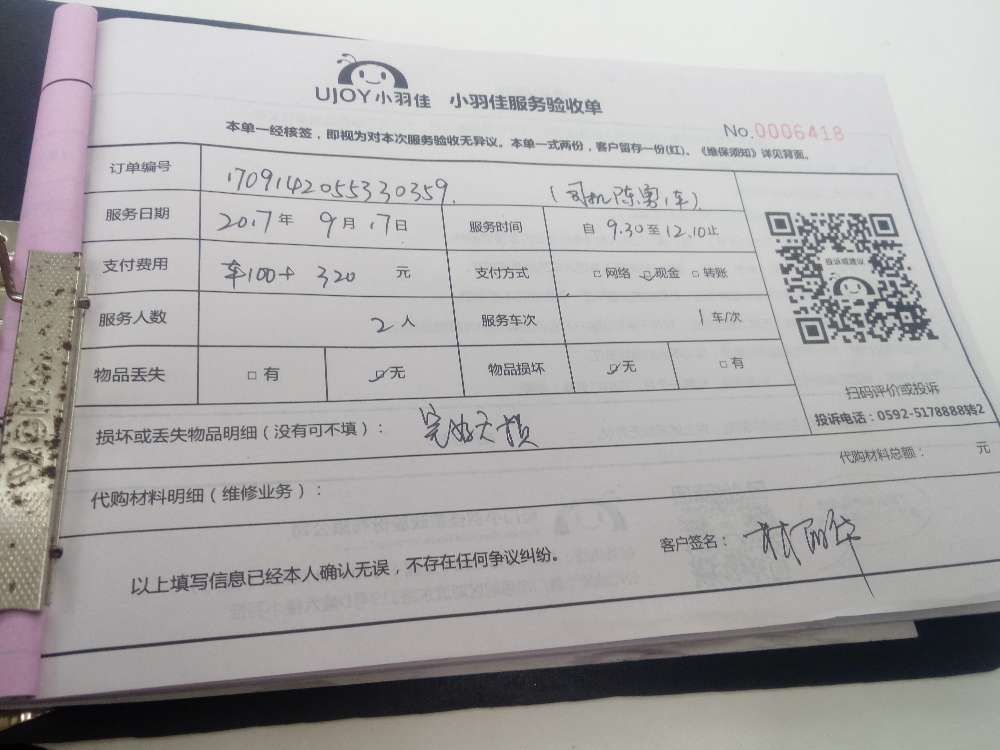 UJOY小羽佳 小羽佳服务验收单
No.0006418
本单一经核签，即视为对本次服务验收无异议。本单一式两份，客户留存一份(红)。《维保须知》详见背面。
订单编号 1709142055330359 (司机陈勇,车)
服务日期 2017年 9月 17日 服务时间 自 9.30至12.10止
支付费用 车100+ 320 元 支付方式 □网络 ☑现金 □转账
服务人数 2人 服务车次 1车/次
物品丢失 □有 ☑无 物品损坏 ☑无 □有
投诉或建议
扫码评价或投诉
投诉电话：0592-5178888转2
损坏或丢失物品明细（没有可不填）： 完好无损
代购材料明细（维修业务）： 代购材料总额： 元
以上填写信息已经本人确认无误，不存在任何争议纠纷。 客户签名：